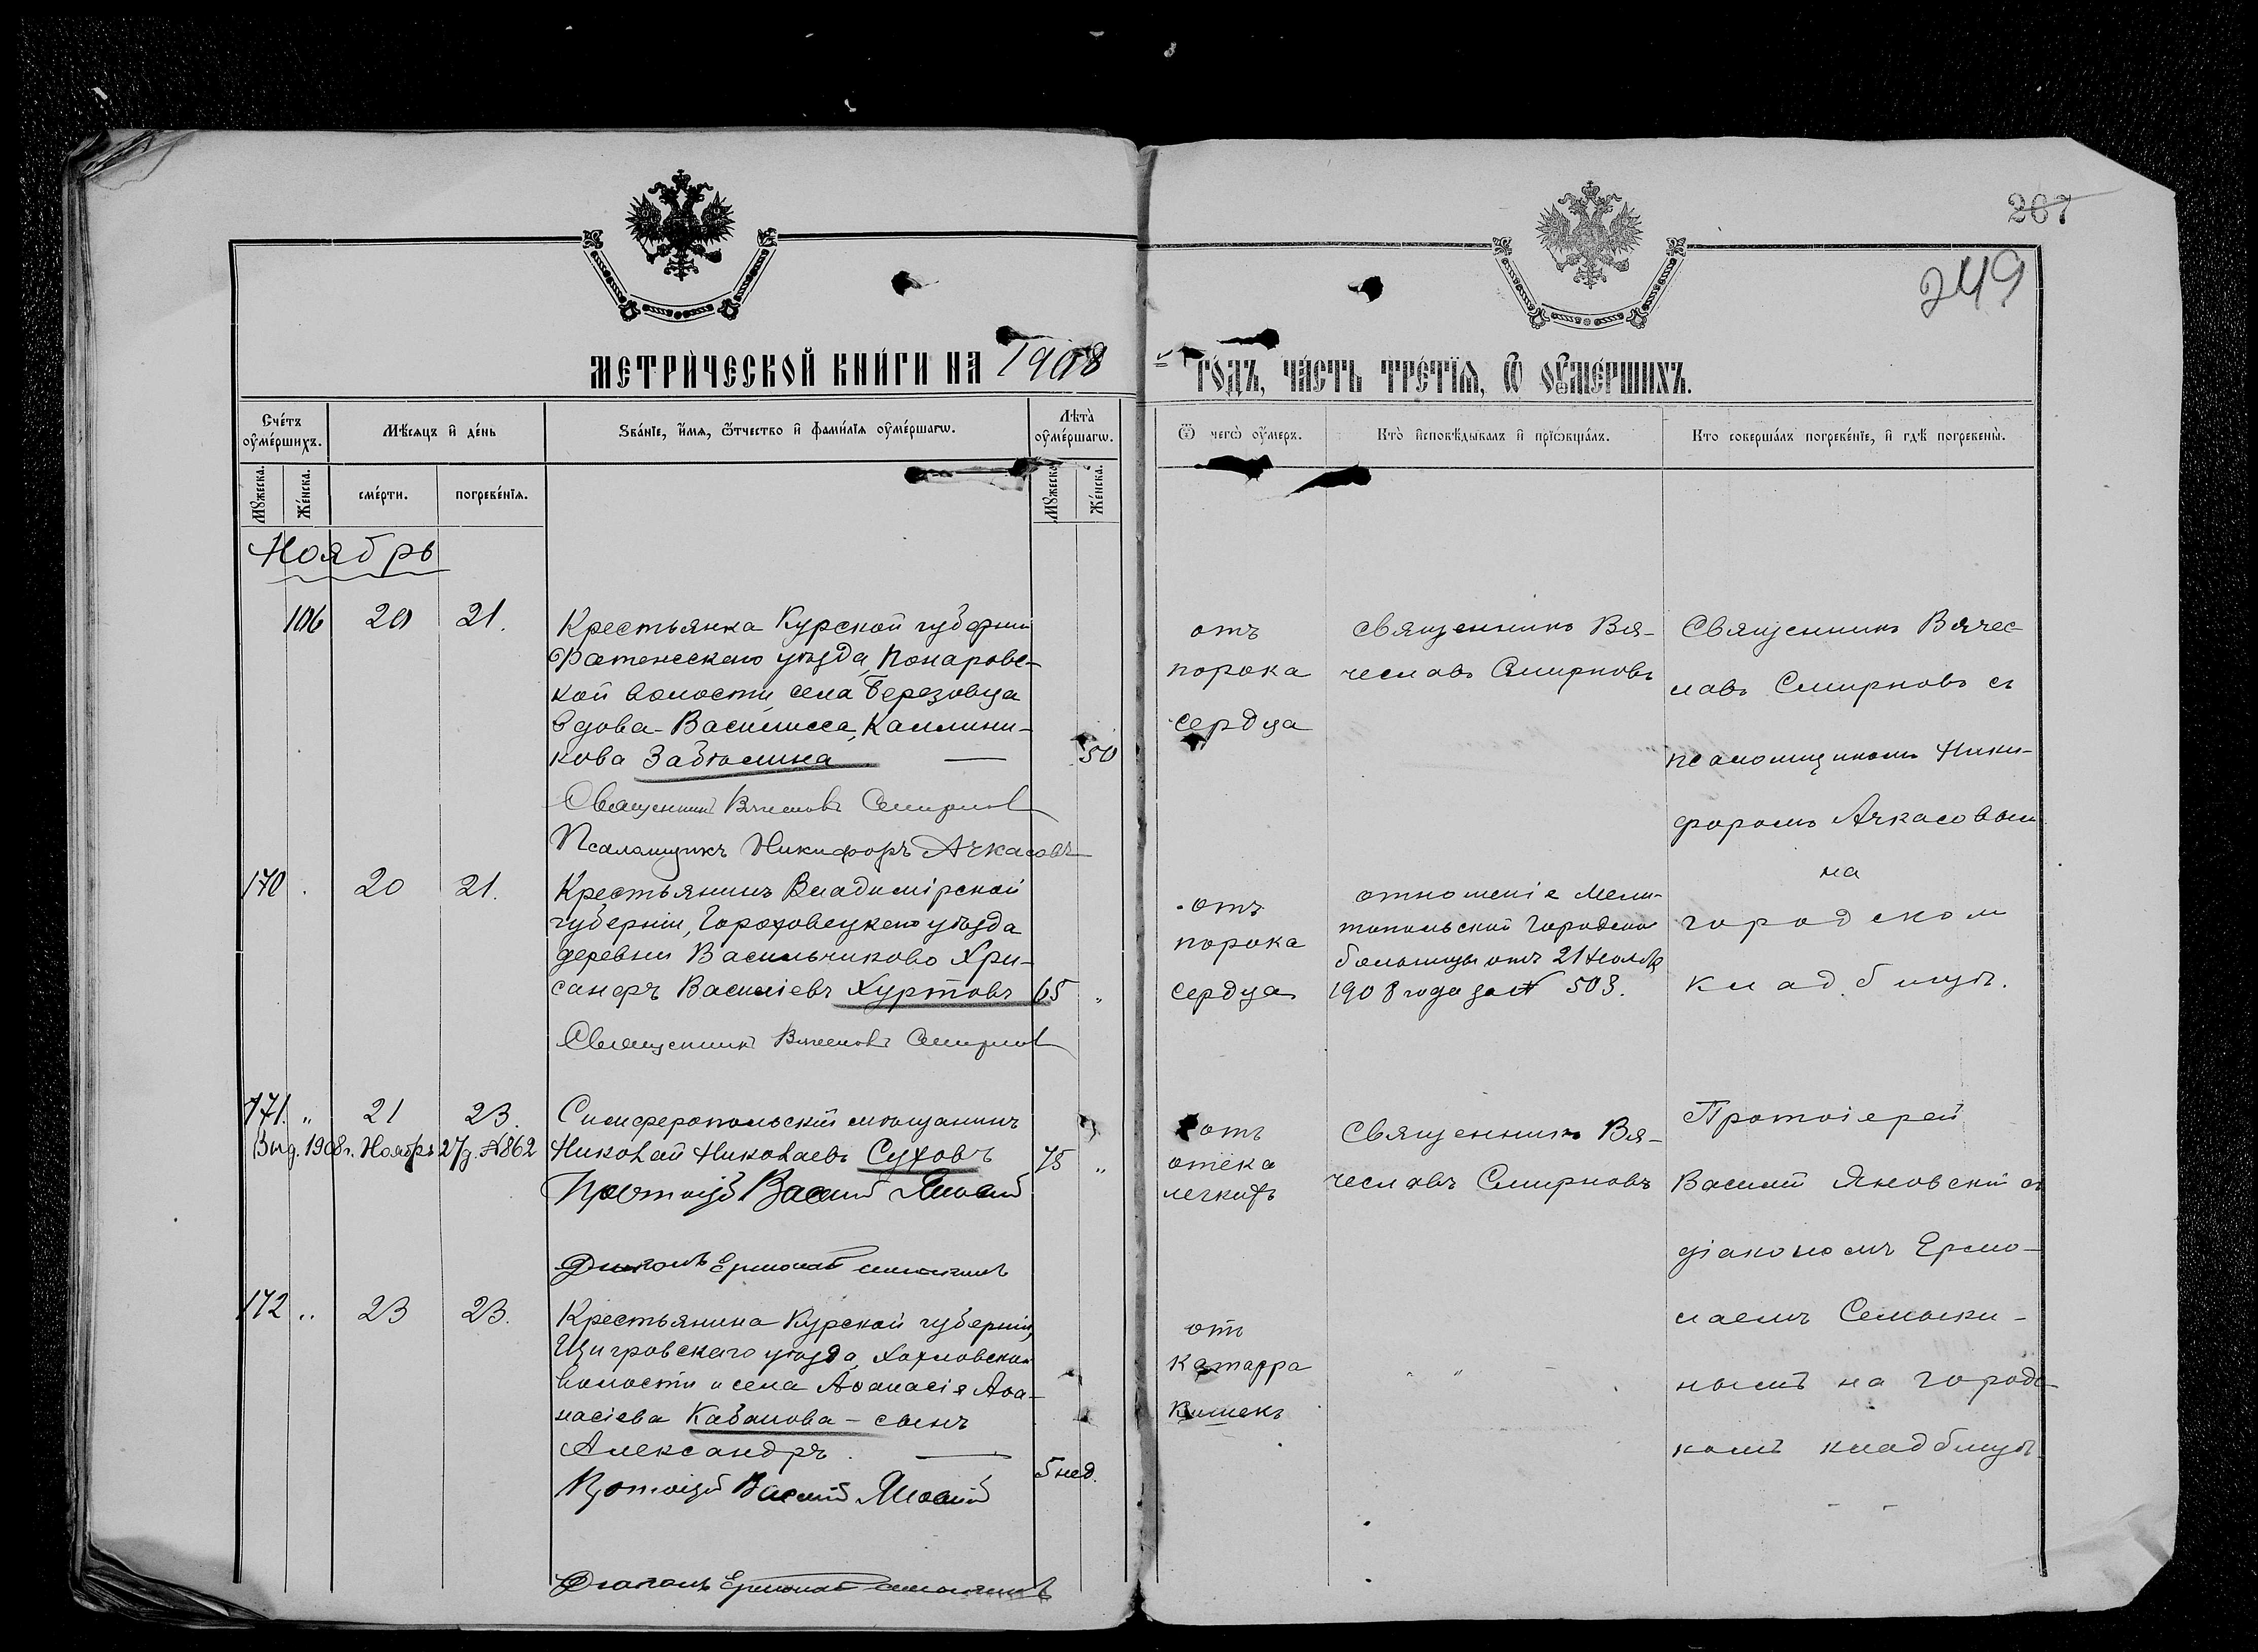 267
249
МЕТРИ́ЧЕСКОЙ КНИ́ГИ НА 1908 ГО́ДЪ, ЧА́СТЬ ТРЕ́ТЇѦ, Ѿ ОУ҆МЕ́РШИХЪ.
Сче́тъ оу҆ме́ршихъ.
Мѣ́сѧцъ и҆ де́нь
Ѕва́нїе, и҆́мѧ, ѻ҆́тчество и҆ фами́лїѧ оу҆ме́ршагѡ.
Лѣ́та оу҆ме́ршагѡ.
Ѿ чегѡ̀ оу҆́меръ.
Кто̀ и҆сповѣ́дывалъ и҆ прїѡбща́лъ.
Кто соверша́лъ погребе́нїе, и҆ гдѣ̀ погребены̀.
Мꙋ́жеска.
Же́нска.
сме́рти.
погребе́нїѧ.
Мꙋ́жеска.
Же́нска.
Ноябрь
106 20 21.
Крестьянка Курской губернии
уѣзда, Понаровс-
кой волости, села Березовца
вдова - Василисса Каллини-
кова Заболина — 50
Священникъ Вячеславъ Смирновъ
Псаломщикъ Никифоръ Ачкасовъ
отъ
порока
сердца
священникъ Вя-
чеславъ Смирновъ
Священникъ Вячес-
лавъ Смирновъ съ
псаломщикомъ Ники-
форомъ Ачкасовым
на
городском
кладбищѣ.
170 . 20 21.
Крестьянинъ Владимірской
губерніи, Гороховецкаго уѣзда
деревни Васильчиково Хри-
санфъ Василіевъ Хуртовъ 65 "
Священникъ Вячеславъ Смирновъ
отъ
порока
сердца
отношеніе Мели-
топольской Городской
больницы отъ 21 Ноября
1908 года за № 503.
171. " 21 23.
Выд. 1908 г. Ноября 27 д. № 862
Симферопольскій мѣщанинъ
Николай Николаевъ Суховъ 75 "
Протоіерей Василій Яновскій
Діаконъ Ермолай Семыкинъ
отъ
отека
легкихъ
Священникъ Вя-
чеславъ Смирновъ
Протоіерей
Василій Яновскій съ
діакономъ Ермо-
лаемъ Семыки-
нымъ на городс-
комъ кладбищѣ
172 " 23 23.
Крестьянина Курской губерніи,
Щигровскаго уѣзда, Хохловской
волости и села Аѳанасія Аѳа-
насіева Кабанова - сынъ
Александръ. — 5 нед.
Протоіерей Василій Яновскій
Діаконъ Ермолай Семыкинъ
отъ
катарра
кишекъ
" "
- -